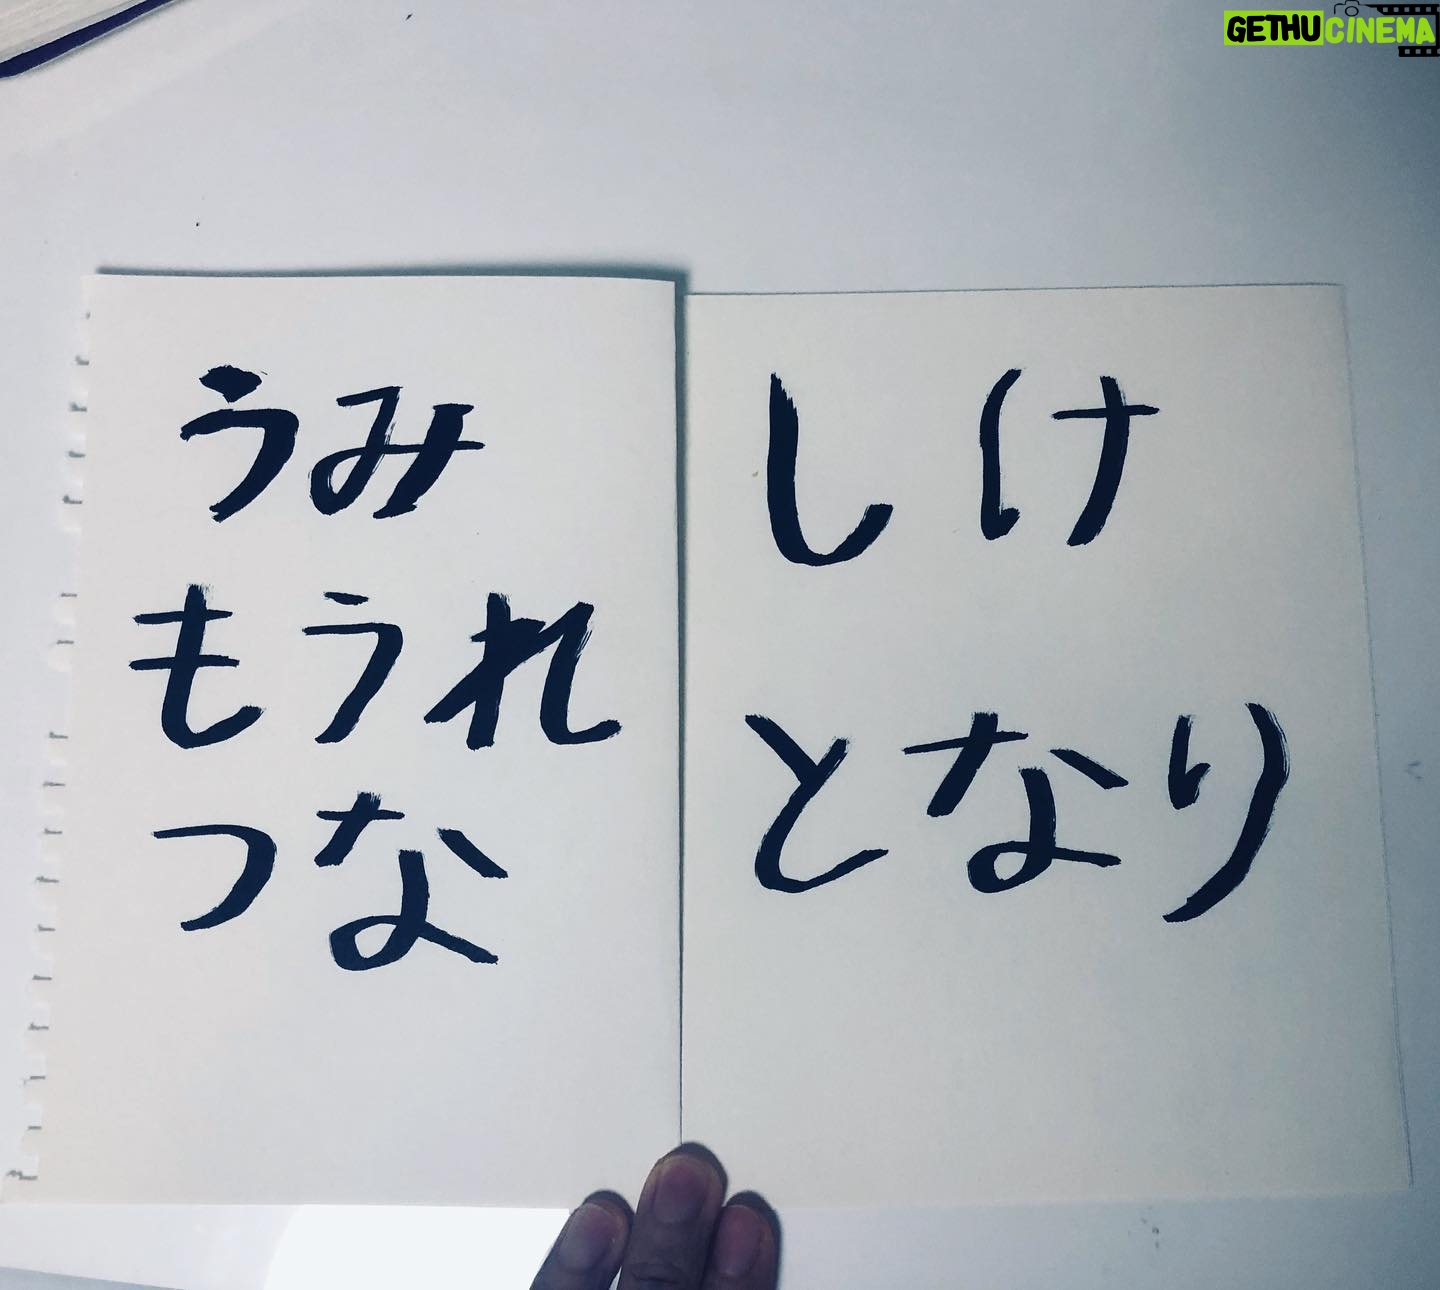 うみ
もうれ
つな
しけ
となり
GETHUCINEMA